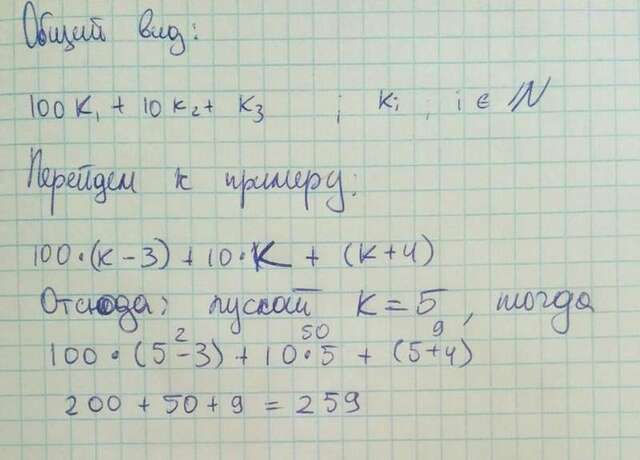 Общий вид:
100 K₁ + 10 K₂ + K₃ ; Kᵢ , i ∈ ℕ
Перейдем к примеру:
100 • (K – 3) + 10 • K + (K + 4)
Отсюда: пускай K = 5, тогда
2 50 9
100 • (5 – 3) + 10 • 5 + (5 + 4)
200 + 50 + 9 = 259